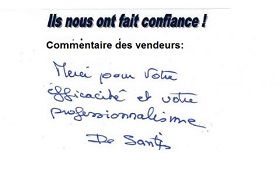 Ils nous ont fait confiance !
Commentaire des vendeurs:
Merci pour votre
efficacité et votre
professionnalisme
De Santis